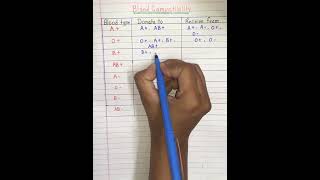 Blood Compatibility
Blood type Donate to Receive from
A+ A+, AB+ A+, A-, O+,
O-
O+ O+, A+, B+, O+, O-
AB+
B+ B+,
AB+
A-
O-
B-
AB-